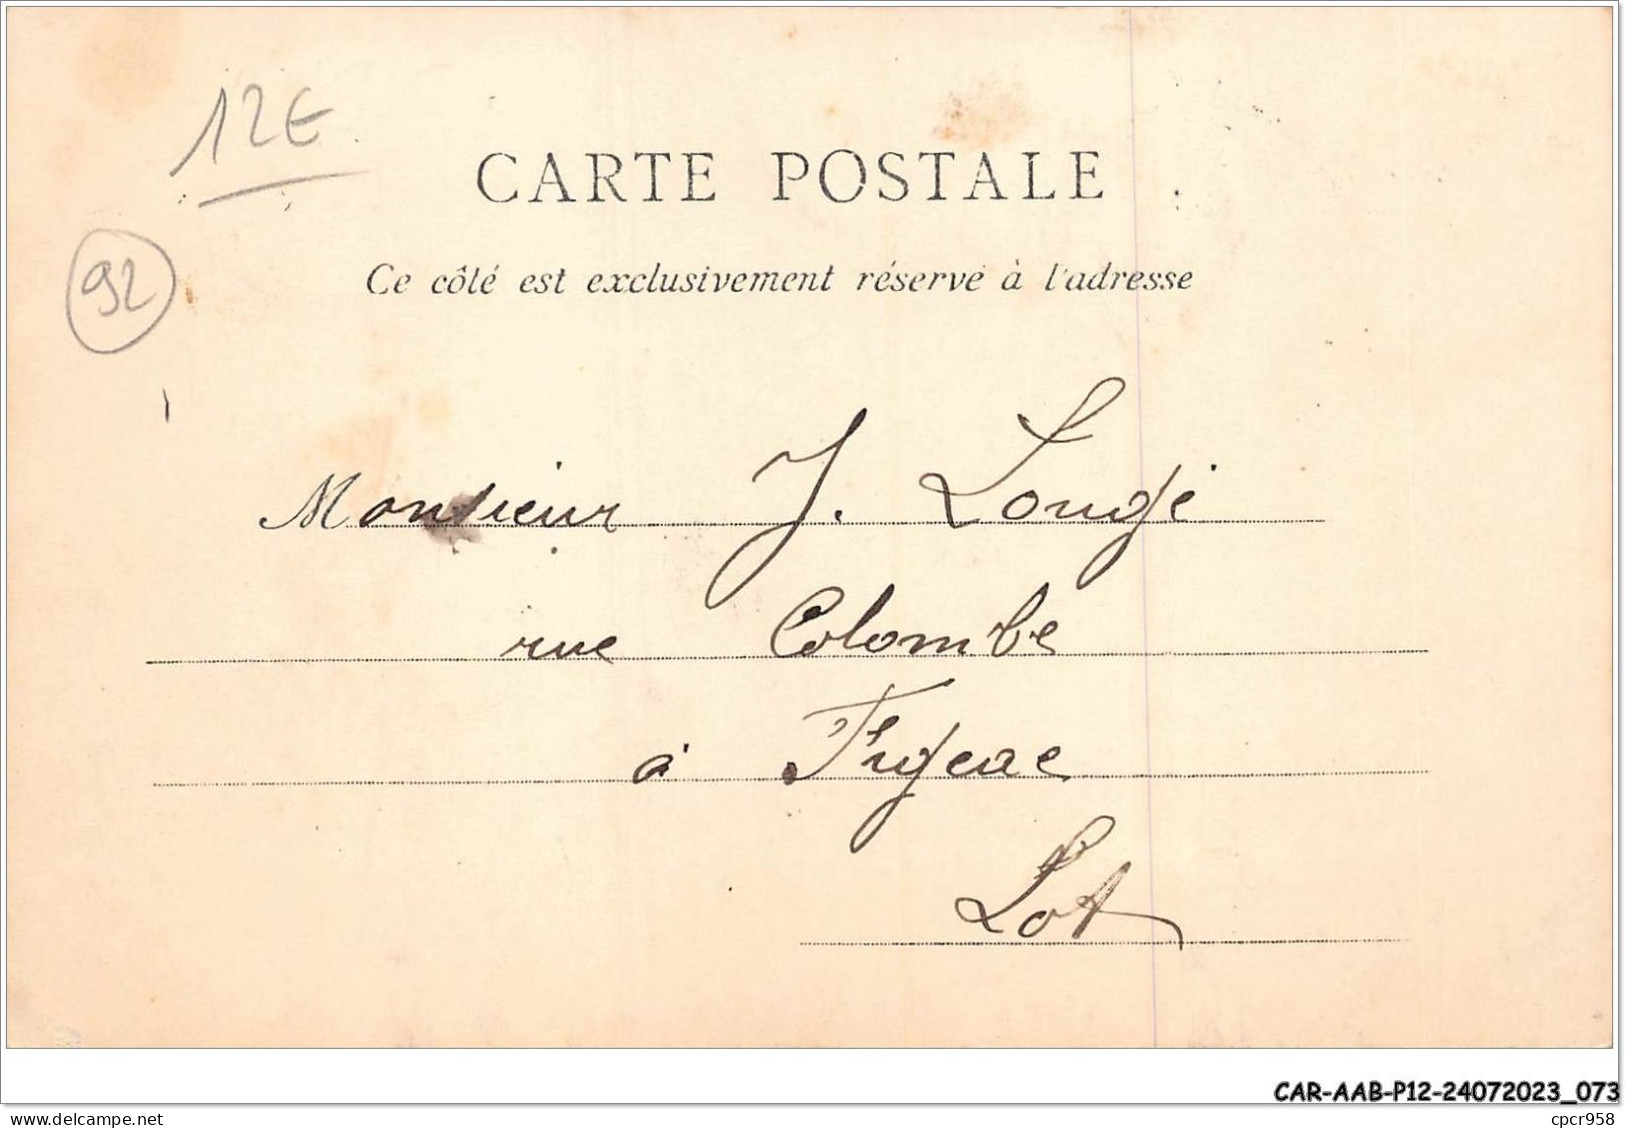 12€
CARTE POSTALE
92
Ce côté est exclusivement réservé à l'adresse
Monsieur J. Lougé
rue Colombe
à Figeac
Lot
CAR-AAB-P12-24072023_073
delcampe.net
cpcr958